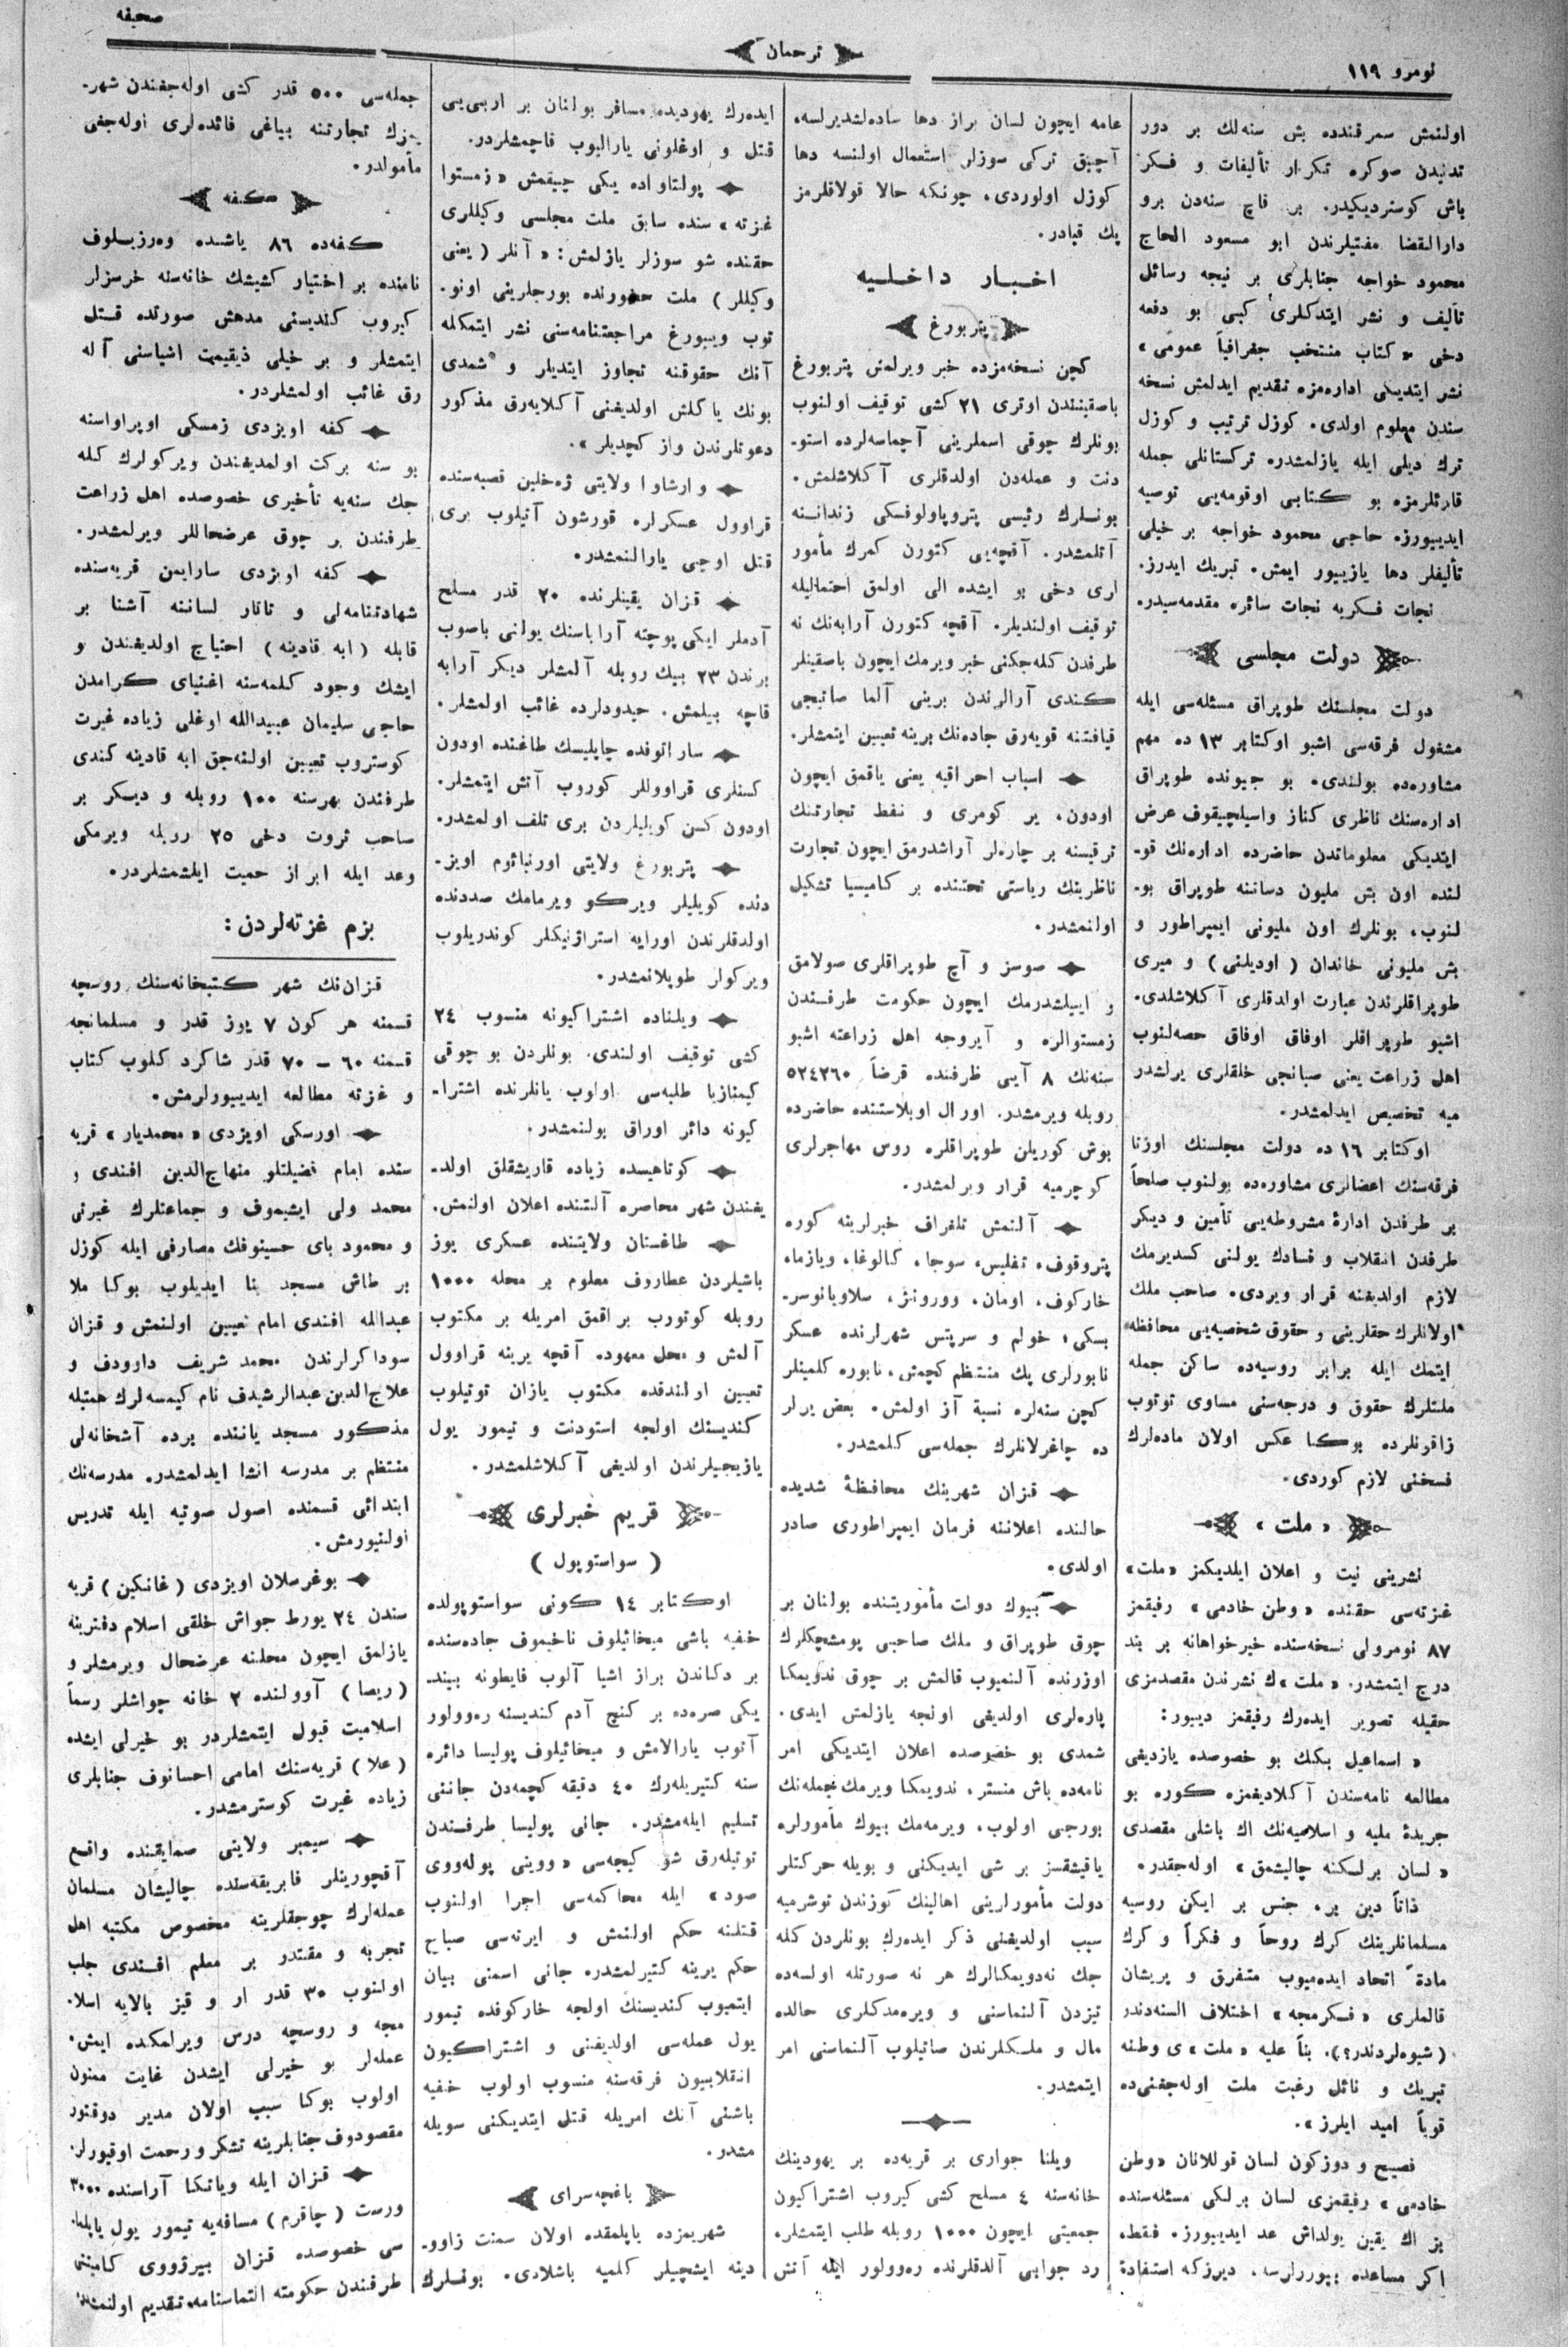 صحيفه
ترجمان
نومرو ١١٩
اولنمش سمرقندده بش سنه‌لك بر دور
تدنيدن صوكره تكرار تأليفات و فكر
باش كوستردیكيدر. بر قاچ سنه‌دن برو
دارالقضا مفتيلرندن ابو مسعود الحاج
محمود خواجه جنابلری بر نيجه رسائل
تأليف و نشر ايتدكلری كبی بو دفعه
دخی «كتاب منتخب جغرافياً عمومی»
نشر ايتديكی اداره‌مزه تقديم ايدلمش نسخه
سندن معلوم اولدی. كوزل ترتيب و كوزل
ترك ديلی ايله يازلمشدره تركستانلی جمله
قارئلرمزه بو كتابی اوقومه‌يی توصيه
ايدييورز. حاجی محمود خواجه بر خيلی
تأليفلر دها يازييور ايمش. تبريك ايدرز.
نجات فكريه نجات سائره مقدمه‌سيدر.
دولت مجلسی
دولت مجلسنك طوپراق مسئله‌سی ايله
مشغول فرقه‌سی اشبو اوكتابر ١٣ ده مهم
مشاوره‌ده بولندی. بو جيونده طوپراق
اداره‌سنك ناظری كناز واسيلچيقوف عرض
ايتديكی معلوماتدن حاضرده اداره‌نك قو-
لنده اون بش مليون دساتنه طوپراق بو-
لنوب، بونلرك اون مليونی ايمپراطور و
بش مليونی خاندان (اوديلنی) و ميری
طوپراقلرندن عبارت اولدقلری آكلاشلدی.
اشبو طوپراقلر اوفاق اوفاق حصه‌لنوب
اهل زراعت يعنی صبانجی خلقلری يرلشدر
ميه تخصيص ايدلمشدر.
اوكتابر ١٦ ده دولت مجلسنك اوزتا
فرقه‌سنك اعضالری مشاوره‌ده بولنوب صلحاً
بر طرفدن ادارۀ مشروطه‌يی تأمين و ديكر
طرفدن انقلاب و فسادك يولنی كسديرمك
لازم اولديغنه قرار ويردی. صاحب ملك
اولانلرك حقلرينی و حقوق شخصيه‌يی محافظه
ايتمك ايله برابر روسيه‌ده ساكن جمله
ملتلرك حقوق و درجه‌سنی مساوی توتوب
زاقونلرده بوكا عكس اولان ماده‌لرك
فسخنی لازم كوردی.
«ملت»
نشرينی نيت و اعلان ايلديكمز «ملت»
غزته‌سی حقنده «وطن خادمی» رفيقمز
٨٧ نومرولی نسخه‌سنده خيرخواهانه بر بند
درج ايتمشدر. «ملت»ك نشرندن مقصدمزی
حقيله تصوير ايده‌رك رفيقمز دييور:
«اسماعيل بكك بو خصوصده يازديغی
مطالعه نامه‌سندن آكلاديغمزه كوره بو
جريدۀ مليه و اسلاميه‌نك اك باشلی مقصدی
«لسان برلكنه چاليشمق» اوله‌جقدر.
ذاتاً دين بر، جنس بر ايكن روسيه
مسلمانلرينك كرك روحاً و فكراً و كرك
مادةً اتحاد ايده‌ميوب متفرق و پريشان
قالملری «فكرمجه» اختلاف السنه‌دندر
(شيوه‌لردندر؟). بناً عليه «ملت»ی وطنه
تبريك و نائل رغبت ملت اوله‌جغنی‌ده
قوياً اميد ايلرز».
فصيح و دوزكون لسان قوللانان «وطن
خادمی» رفيقمزی لسان برلكی مسئله‌سنده
بز اك يقين يولداش عد ايدييورز. فقط،
اكر مساعده بيوررلرسه، ديرزكه استفادۀ
عامه ايچون لسان براز دها ساده‌لشديرلسه،
آچيق تركی سوزلر استعمال اولنسه دها
كوزل اولوردی. چونكه حالا قولاقلرمز
پك قبادر.
اخبار داخليه
پتربورغ
كچن نسخه‌مزده خبر ويرلمش پتربورغ
باصقينندن اوتری ٢١ كشی توقيف اولنوب
بونلرك چوقی اسملرينی آچماسه‌لرده استو-
دنت و عمله‌دن اولدقلری آكلاشلمش.
بونلرك رئيسی پتروپاولوفسكی زنداننه
آتلمشدر. آقچه‌يی كتورن كمرك مأمور
لری دخی بو ايشده الی اولمق احتماليله
توقيف اولنديلر. آقچه كتورن آرابه‌نك نه
طرفدن كله‌جكنی خبر ويرمك ايچون باصقينلر
كندی آرالرندن برينی آلما صاتيجی
قيافتنه قويه‌رق جاده‌نك برينه تعيين ايتمشلر.
اسباب احراقيه يعنی ياقمق ايچون
اودون، ير كومری و نفط تجارتنك
ترقيسنه بر چاره‌لر آراشدرمق ايچون تجارت
ناظرينك رياستی تحتنده بر كاميسيا تشكيل
اولنمشدر.
صوسز و آچ طوپراقلری صولامق
و ايييلشدرمك ايچون حكومت طرفندن
زمستوالره و آيروجه اهل زراعته اشبو
سنه‌نك ٨ آيی ظرفنده قرضاً ٥٢٤٢٦٠
روبله ويرمشدر. اورال اوبلاستنده حاضرده
بوش كوريلن طوپراقلره روس مهاجرلری
كوچرميه قرار ويرلمشدر.
آلنمش تلغراف خبرلرينه كوره
پتروقوف، تفليس، سوجا، كالوغا، ويازما،
خاركوف، اومان، وورونژ، سلاويانوسر-
بسكی، خولم و سرپتس شهرلرنده عسكر
نابورلری پك منتظم كچمش، نابوره كلمينلر
كچن سنه‌لره نسبة آز اولمش. بعض يرلر
ده چاغرلانلرك جمله‌سی كلمشدر.
قزان شهرينك محافظۀ شديده
حالنده اعلاننه فرمان ايمپراطوری صادر
اولدی.
بيوك دولت مأموريتنده بولنان بر
چوق طوپراق و ملك صاحبی پومشچكلرك
اوزرنده آلنميوب قالمش بر چوق ندويمكا
پاره‌لری اولديغی اولجه يازلمش ايدی.
شمدی بو خصوصده اعلان ايتديكی امر
نامه‌ده باش منستر، ندويمكا ويرمك جمله‌نك
بورجی اولوب، ويرمه‌مك بيوك مأمورلره
ياقيشقسز بر شی ايديكنی و بويله حركتلر
دولت مأمورلرينی اهالينك كوزندن توشرميه
سبب اولديغنی ذكر ايده‌رك بونلردن كله
جك نه‌دويمكالرك هر نه صورتله اولسه‌ده
تيزدن آلنماسنی و ويره‌مدكلری حالده
مال و ملكلرندن صاتيلوب آلنماسنی امر
ايتمشدر.
ويلنا جواری بر قريه‌ده بر يهودينك
خانه‌سنه ٤ مسلح كشی كيروب اشتراكيون
جمعيتی ايچون ١٠٠٠ روبله طلب ايتمشلر.
رد جوابی آلدقلرنده ره‌وولور ايله آتش
ايده‌رك يهوديده مسافر بولنان بر اربی‌يی
قتل و اوغلونی يارالیوب قاچمشلردر.
پولتاواده يكی چيقمش «زمستوا
غزته» سنده سابق ملت مجلسی وكيللری
حقنده شو سوزلر يازلمش: «آنلر (يعنی
وكيللر) ملت حضورنده بورجلرينی اونو-
توب ويبورغ مراجعتنامه‌سنی نشر ايتمكله
آنك حقوقنه تجاوز ايتديلر و شمدی
بونك ياكلش اولديغنی آكلايه‌رق مذكور
دعوتلرندن واز كچديلر».
وارشاوا ولايتی ژه‌خلين قصبه‌سنده
قراوول عسكرلره قورشون آتيلوب بری
قتل اوچی يارالنمشدر.
قزان يقينلرنده ٢٠ قدر مسلح
آدملر ايكی پوچته آراباسنك يولنی باصوب
برندن ٢٣ بيك روبله آلمشلر ديكر آرابه
قاچه بيلمش. حيدودلرده غائب اولمشلر.
ساراتوفده چاپليسك طاغنده اودون
كسنلری قراووللر كوروب آتش ايتمشلر.
اودون كسن كويليلردن بری تلف اولمشدر.
پتربورغ ولايتی اورنباؤم اويز-
دنده كويليلر ويركو ويرمامك صددنده
اولدقلرندن اورايه استراژنيكلر كوندريلوب
ويركولر طوپلانمشدر.
ويلناده اشتراكيونه منسوب ٢٤
كشی توقيف اولندی. بونلردن بو چوقی
كيمنازيا طلبه‌سی اولوب يانلرنده اشترا-
كيونه دائر اوراق بولنمشدر.
كوتاهيسده زياده قاريشقلق اولد-
يغندن شهر محاصره آلتنده اعلان اولنمش.
طاغستان ولايتنده عسكری يوز
باشيلردن عطاروف معلوم بر محله ١٠٠٠
روبله كوتورب براقمق امريله بر مكتوب
آلمش و محل معهوده آقچه يرينه قراوول
تعيين اولندقده مكتوب يازان توتيلوب
كنديسنك اولجه استودنت و تيمور يول
يازيجيلرندن اولديغی آكلاشلمشدر.
قريم خبرلری
(سواستوپول)
اوكتابر ١٤ كونی سواستوپولده
خفيه باشی ميخائيلوف ناخيموف جاده‌سنده
بر دكاندن براز اشيا آلوب فايطونه بيند-
يكی صره‌ده بر كنچ آدم كنديسنه ره‌وولور
آتوب يارالامش و ميخائيلوف پوليسا دائره
سنه كتيريله‌رك ٤٠ دقيقه كچمه‌دن جاننی
تسليم ايله‌مشدر. جانی پوليسا طرفندن
توتيله‌رق شو كيجه‌سی «ووينی پوله‌ووی
صود» ايله محاكمه‌سی اجرا اولنوب
قتلنه حكم اولنمش و ايرته‌سی صباح
حكم يرينه كتيرلمشدر. جانی اسمنی بيان
ايتميوب كنديسنك اولجه خاركوفده تيمور
يول عمله‌سی اولديغنی و اشتراكيون
انقلابيون فرقه‌سنه منسوب اولوب خفيه
باشنی آنك امريله قتل ايتديكنی سويله
مشدر.
باغچه‌سرای
شهريمزده ياپلمقده اولان سمنت زاوو-
دينه ايشچيلر كلميه باشلادی. بونلرك
جمله‌سی ٥٠٠ قدر كشی اوله‌جغندن شهر-
يمزك تجارتنه بياغی فائده‌لری اوله‌جغی
مأمولدر.
كفه
كفه‌ده ٨٦ ياشنده وه‌رزبلوف
نامنده بر اختيار كشيشك خانه‌سنه خرسزلر
كيروب كنديسنی مدهش صورتده قتل
ايتمشلر و بر خيلی ذيقيمت اشياسنی آله
رق غائب اولمشلردر.
كفه اويزدی زمسكی اوپراواسنه
بو سنه بركت اولمديغندن ويركولرك كله
جك سنه‌يه تأخيری خصوصده اهل زراعت
طرفندن بر چوق عرضحاللر ويرلمشدر.
كفه اويزدی سارايمن قريه‌سنده
شهادتنامه‌لی و تاتار لساننه آشنا بر
قابله (ابه قادينه) احتياج اولديغندن و
ايشك وجود كلمه‌سنه اغنيای كرامدن
حاجی سليمان عبيدالله اوغلی زياده غيرت
كوستروب تعيين اولنه‌جق ابه قادينه كندی
طرفندن بهرسنه ١٠٠ روبله و ديكر بر
صاحب ثروت دخی ٢٥ روبله ويرمكی
وعد ايله ابراز حميت ايلشمشلردر.
بزم غزته‌لردن:
قزان‌نك شهر كتبخانه‌سنك روسچه
قسمنه هر كون ٧ يوز قدر و مسلمانجه
قسمنه ٦٠ – ٧٠ قدر شاكرد كلوب كتاب
و غزته مطالعه ايدييورلرمش.
اورسكی اويزدی «محمديار» قريه
سنده امام فضيلتلو منهاج‌الدين افندی و
محمد ولی ايشبوف و جماعتلرك غيرتی
و محمود بای حسينوفك مصارفی ايله كوزل
بر طاش مسجد بنا ايديلوب بوكا ملا
عبدالله افندی امام تعيين اولنمش و قزان
سوداكرلرندن محمد شريف داوودف و
علاج‌الدين عبدالرشيدف نام كيمسه‌لرك همتيله
مذكور مسجد ياننده برده آشخانه‌لی
منتظم بر مدرسه انشا ايدلمشدر. مدرسه‌نك
ابتدائی قسمنده اصول صوتيه ايله تدريس
اولنيورمش.
بوغرسلان اويزدی (غانكين) قريه
سندن ٢٤ يورط جواش خلقی اسلام دفترينه
يازلمق ايچون محلنه عرضحال ويرمشلر و
(ريصا) آوولنده ٢ خانه چواشلر رسماً
اسلاميت قبول ايتمشلردر بو خيرلی ايشده
(علا) قريه‌سنك امامی احسانوف جنابلری
زياده غيرت كوسترمشدر.
سيمبر ولايتی صمايقنده واقع
آقچورينلر فابريقه‌سنده چاليشان مسلمان
عمله‌لرك چوجقلرينه مخصوص مكتبه اهل
تجربه و مقتدر بر معلم افندی جلب
اولنوب ٣٠ قدر ار و قيز بالايه اسلا-
مجه و روسچه درس ويرلمكده ايمش.
عمله‌لر بو خيرلی ايشدن غايت ممنون
اولوب بوكا سبب اولان مدير دوقتور
مقصودوف جنابلرينه تشكر و رحمت اوقيورلر.
قزان ايله وياتكا آراسنده ٣٠٠٠
ورست (چاقرم) مسافه‌يه تيمور يول ياپلما-
سی خصوصده قزان بيرژووی كاميتتی
طرفندن حكومته التماسنامه تقديم اولنمش.